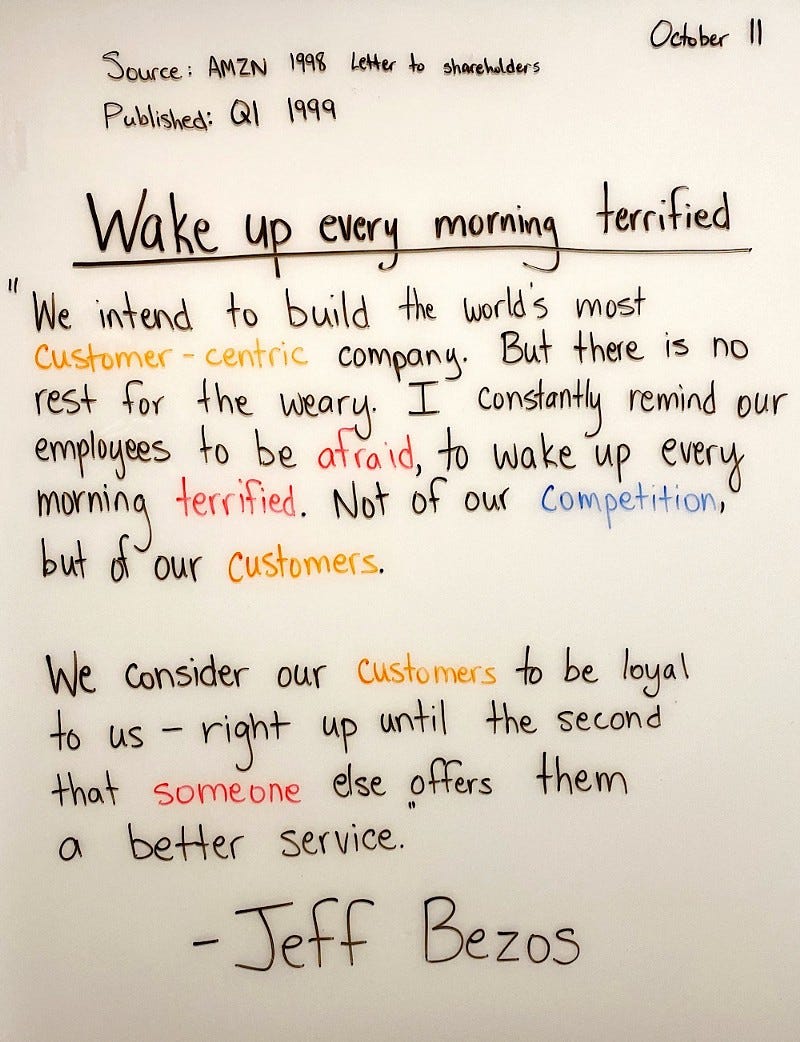 October 11
Source: AMZN 1998 Letter to shareholders
Published: Q1 1999
Wake up every morning terrified
"We intend to build the world's most
customer-centric company. But there is no
rest for the weary. I constantly remind our
employees to be afraid, to wake up every
morning terrified. Not of our competition,
but of our customers.
We consider our customers to be loyal
to us - right up until the second
that someone else offers them
a better service."
- Jeff Bezos